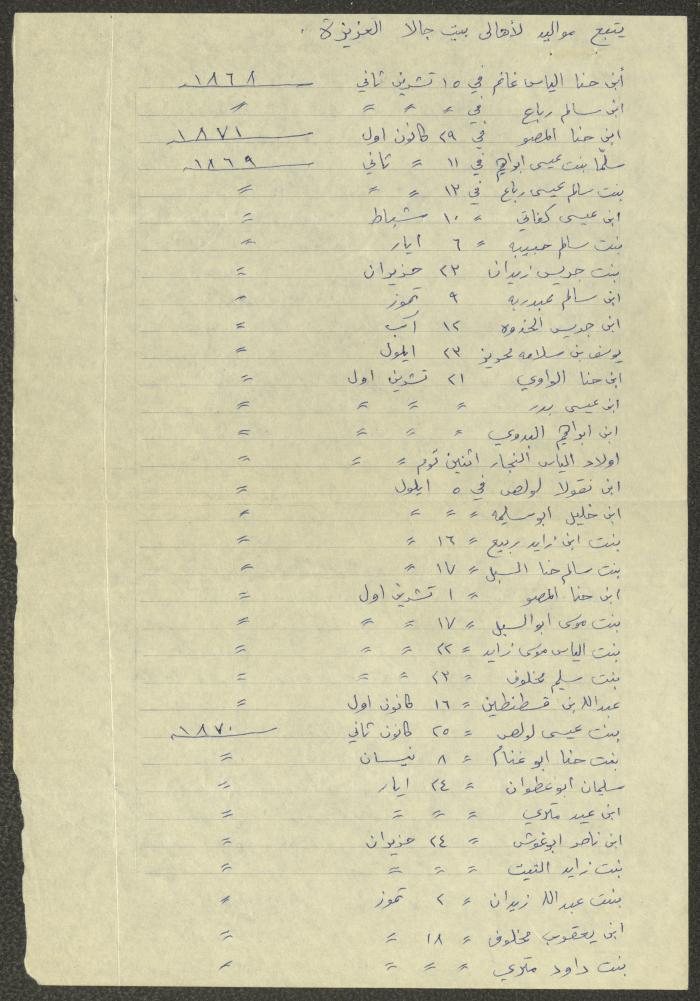 يتبع مواليد لأهالي بيت جالا العزيزة .
أبن حنا الياس غانم في ١٥ تشرين ثاني ١٨٦٨
ابن سالم رباع في 〃 〃 〃 〃
ابن حنا المصو في ٢٩ كانون اول ١٨٧١
سلمّا بنت عيسى ابراهيم في ١١ 〃 ثاني ١٨٦٩
بنت سالم عيسى رباع في ١٣ 〃 〃 〃
ابن عيسى 〃 ١٠ شباط 〃
بنت سالم حبيبه 〃 ٦ ايار 〃
بنت جريس زيدان ٢٣ حزيران 〃
ابن سالم عبدربه ٩ تموز 〃
ابن جريس ١٢ آب 〃
يوسف بن سلامه ٢٣ ايلول 〃
ابن حنا الراوي ٢١ تشرين اول 〃
ابن عيسى بدر 〃 〃 〃 〃
ابن ابراهيم البدوي 〃 〃 〃 〃
اولاد الياس النجار اثنين توم 〃 〃 〃
ابن نقولا لولص في ٥ ايلول 〃
ابن خليل ابو سليمه 〃 〃 〃 〃
بنت ابن زايد ربيع 〃 ١٦ 〃 〃
بنت سالم حنا السبل 〃 ١٧ 〃 〃
ابن حنا المصو 〃 ١ تشرين اول 〃
بنت موسى ابو السبل 〃 ١٧ 〃 〃 〃
بنت الياس موسى زايد 〃 ٢٢ 〃 〃 〃
بنت سليم مخلوف 〃 ٢٣ 〃 〃 〃
عبدالله بن قسطنطين 〃 ١٦ كانون اول 〃
بنت عيسى لولص 〃 ٢٥ كانون ثاني ١٨٧٠
بنت حنا ابو غنام 〃 ٨ نيسان 〃
سليمان ابو عطوان 〃 ٢٤ ايار 〃
ابن عيد متري 〃 〃 〃 〃
ابن ناصر ابو غوش 〃 ٢٤ حزيران 〃
بنت زايد التيت 〃 〃 〃 〃
بنت عبدالله زيدان 〃 ٢ تموز 〃
ابن يعقوب مخلوف 〃 ١٨ 〃 〃
بنت داود متري 〃 〃 〃 〃